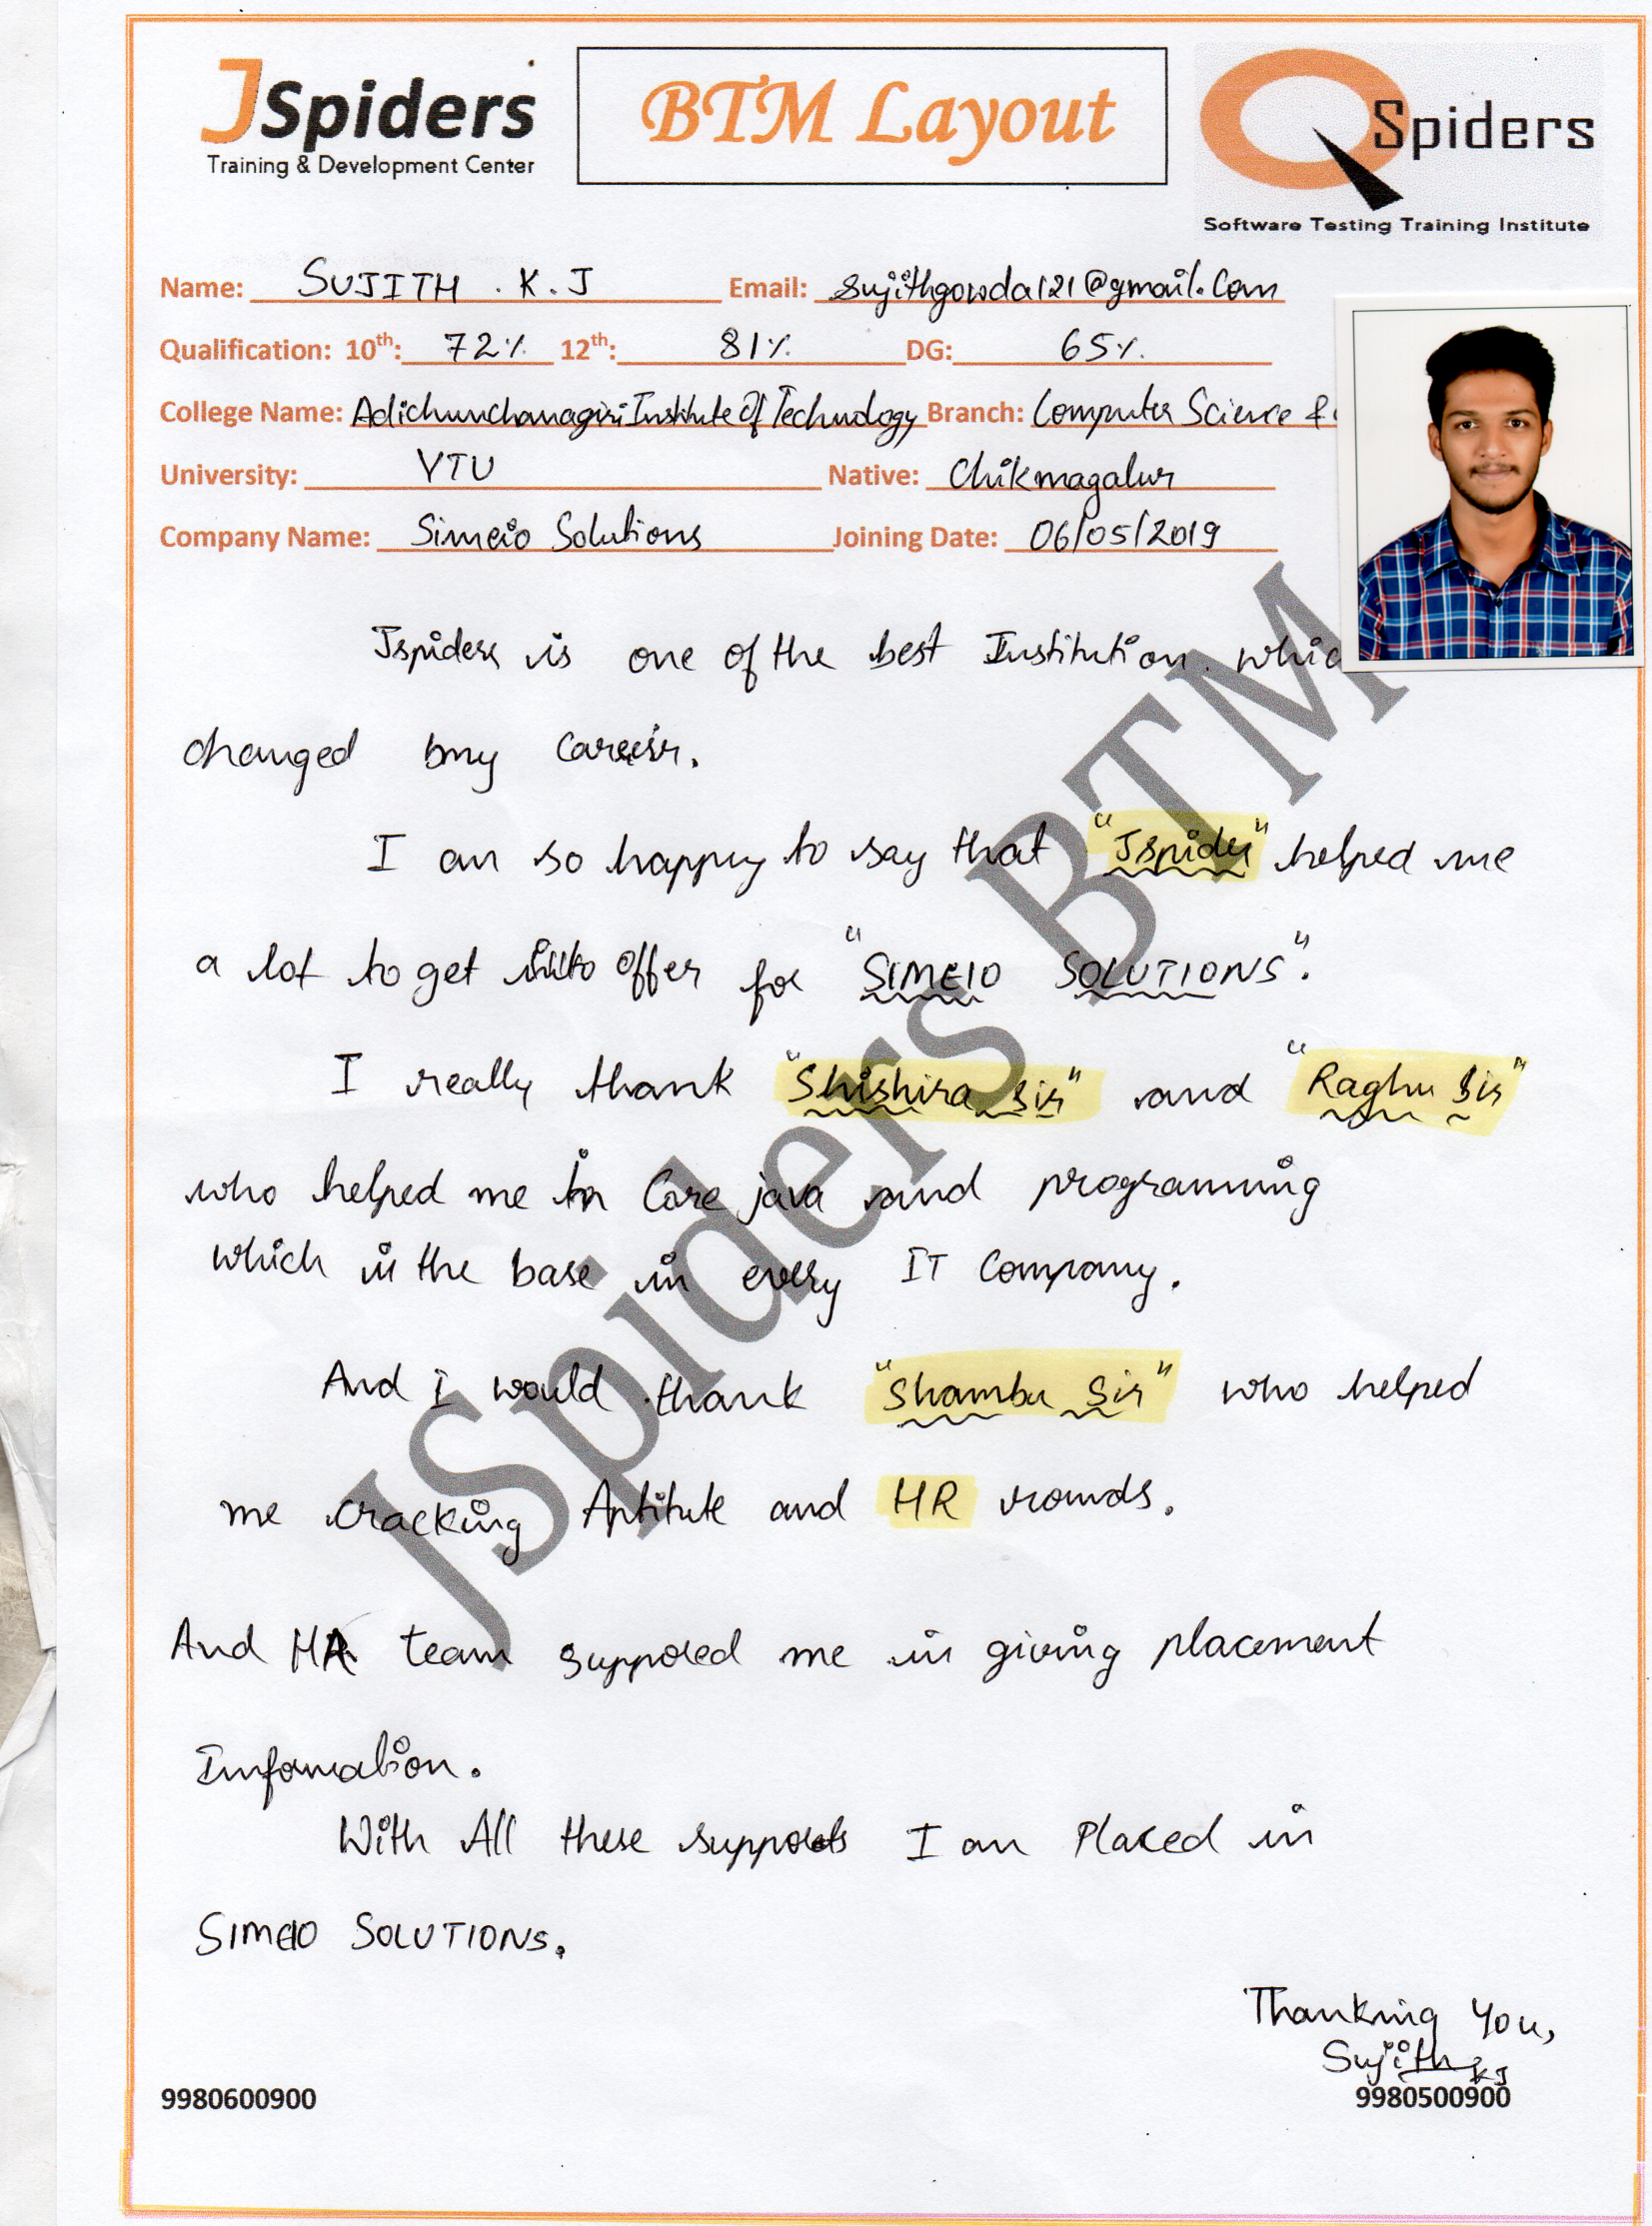 JSpiders
Training & Development Center
BTM Layout
QSpiders
Software Testing Training Institute
Name: SUJITH . K . J Email: sujithgowda121@gmail.com
Qualification: 10th: 72% 12th: 81% DG: 65%
College Name: Adichunchanagiri Institute Of Technology Branch: Computer Science &
University: VTU Native: Chikmagalur
Company Name: Simeio Solutions Joining Date: 06/05/2019
Jspiders is one of the best Institution. whic
changed my career.
I am so happy to say that "Jspider" helped me
a lot to get offer for "SIMEIO SOLUTIONS".
I really thank "Shishira Sir" and "Raghu Sir"
who helped me in Core java and programming
which is the base in every IT Company.
And I would thank "Shambu Sir" who helped
me cracking Aptitute and HR rounds.
And HR team suppored me in giving placement
Infomation.
With All these supports I am Placed in
SIMEIO SOLUTIONS.
Thanking You,
Sujith KJ
9980600900 9980500900
JSpiders BTM